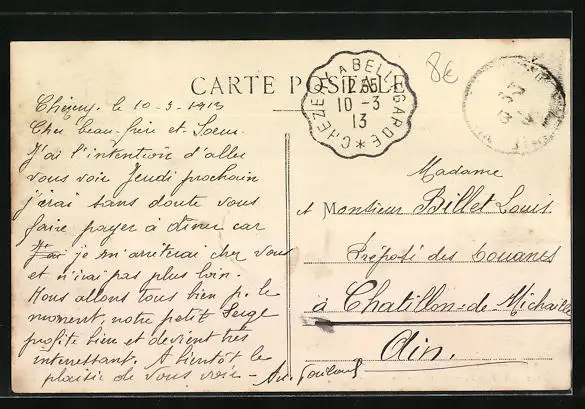 8€
CARTE POSTALE
CHEZERY A BELLEGARDE
10-3
13
Chézery le 10-3-1913
Cher beau-frère et Soeur
J'ai l'intention d'aller
vous voir Jeudi prochain
j'irai sans doute vous
faire payer à diner car
J'ai je m'arrêterai chez vous
et n'irai pas plus loin.
Nous allons tous bien p. le
moment, notre petit Serge
profite bien et devient très
interressant. A bientôt le
plaisir de vous voir -
Madame
et Monsieur Billet Louis
Préposé des Douanes
à Chatillon-de-Michaille
Ain.